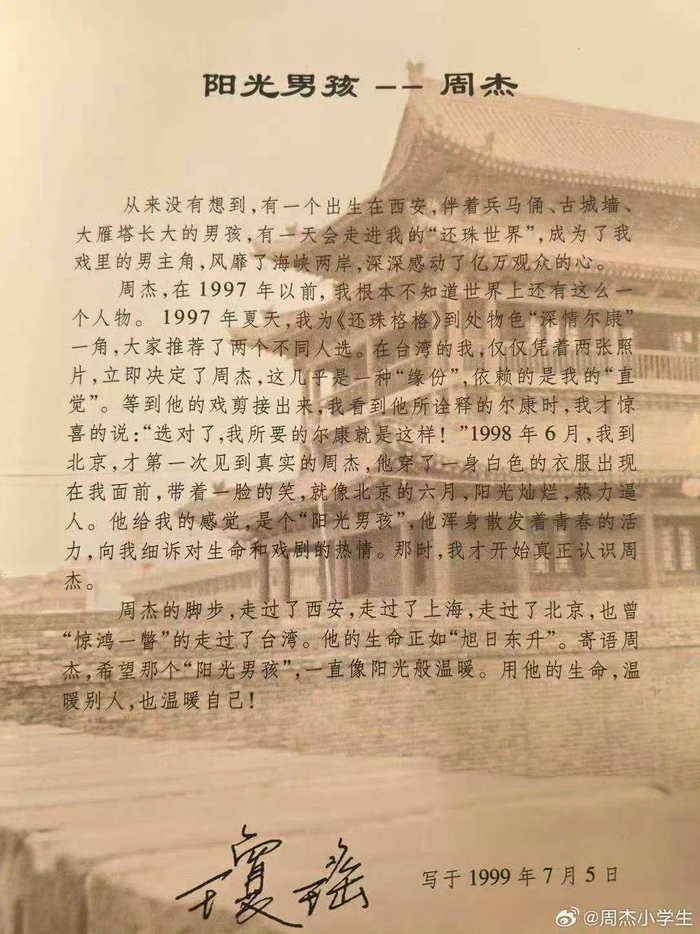 阳光男孩 -- 周杰
从来没有想到,有一个出生在西安,伴着兵马俑、古城墙、
大雁塔长大的男孩,有一天会走进我的“还珠世界”,成为了我
戏里的男主角,风靡了海峡两岸,深深感动了亿万观众的心。
周杰,在 1997 年以前,我根本不知道世界上还有这么一
个人物。1997 年夏天,我为《还珠格格》到处物色“深情尔康”
一角,大家推荐了两个不同人选。在台湾的我,仅仅凭着两张照
片,立即决定了周杰,这几乎是一种“缘份”,依赖的是我的“直
觉”。等到他的戏剪接出来,我看到他所诠释的尔康时,我才惊
喜的说:“选对了,我所要的尔康就是这样!”1998 年 6 月,我到
北京,才第一次见到真实的周杰,他穿了一身白色的衣服出现
在我面前,带着一脸的笑,就像北京的六月,阳光灿烂,热力逼
人。他给我的感觉,是个“阳光男孩”,他浑身散发着青春的活
力,向我细诉对生命和戏剧的热情。那时,我才开始真正认识周
杰。
周杰的脚步,走过了西安,走过了上海,走过了北京,也曾
“惊鸿一瞥”的走过了台湾。他的生命正如“旭日东升”。寄语周
杰,希望那个“阳光男孩”,一直像阳光般温暖。用他的生命,温
暖别人,也温暖自己!
琼瑶
写于 1999 年 7 月 5 日
@周杰小学生